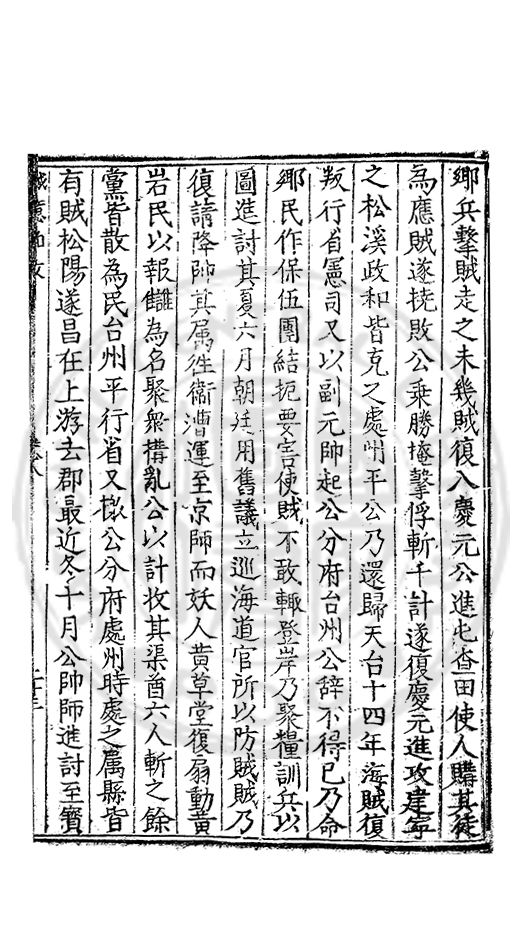 鄉兵擊賊走之未幾賊復入慶元公進屯查田使人購其徒
為應賊遂撓敗公乘勝掩擊俘斬千計遂復慶元進攻建寧
之松溪政和皆克之處州平公乃還歸天台十四年海賊復
叛行省憲司又以副元帥起公分府台州公辭不得已乃命
鄉民作保伍團結扼要害使賊不敢輙登岸乃聚糧訓兵以
圖進討其夏六月朝廷用舊議立巡海道官所以防賊賊乃
復請降帥其属徃衞漕運至京師而妖人黄草堂復扇動黄
岩民以報讎為名聚衆搆亂公以計收其渠酋六人斬之餘
黨皆散為民台州平行省又檄公分府處州時處之属縣皆
有賊松陽遂昌在上游去郡最近冬十月公帥師進討至寳
二十三